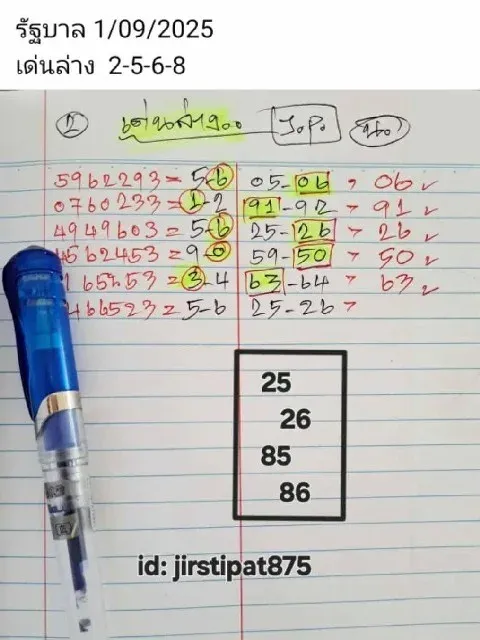 รัฐบาล 1/09/2025
เด่นล่าง 2-5-6-8
2 เด่นล่าง J.P.
5962293 = 5-6 05-06 , 06 ✓
0760233 = 1-2 91-92 , 91 ✓
4949603 = 5-6 25-26 , 26 ✓
4562453 = 9-0 59-50 , 50 ✓
= 3-4 63-64 , 63 ✓
466523 = 5-6 25-26 ,
25
26
85
86
id: jirstipat875